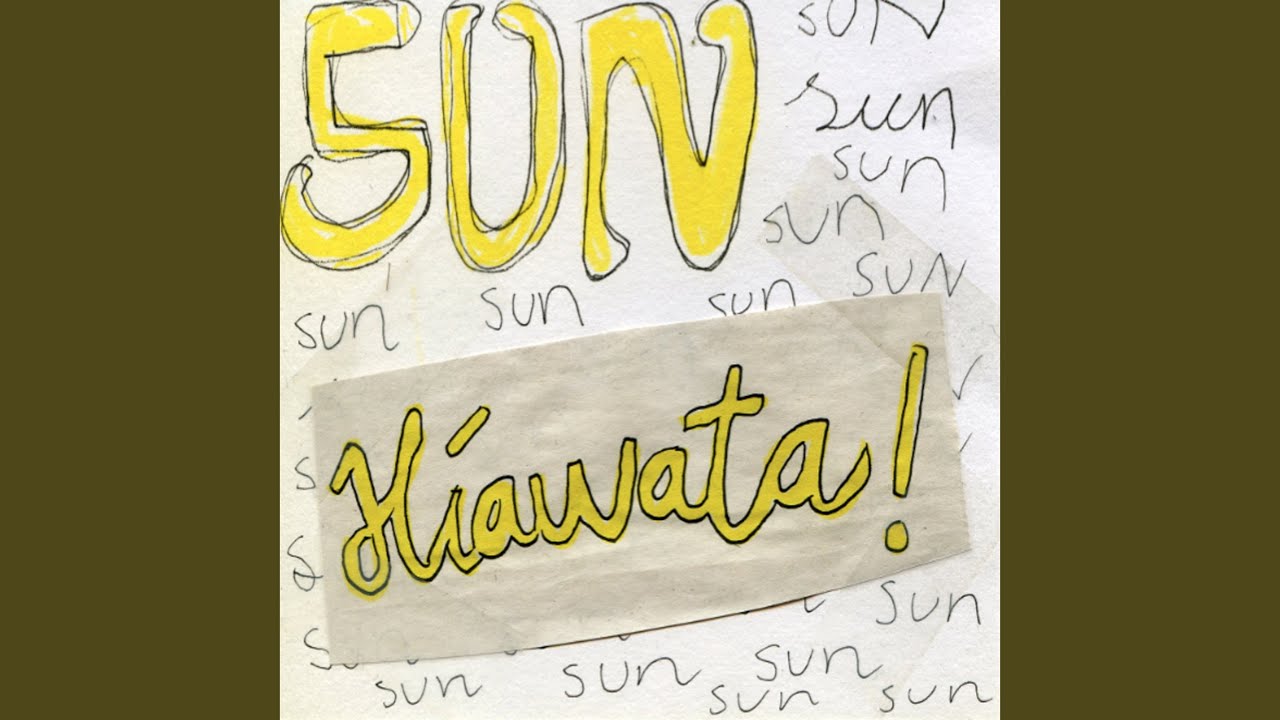 SUN
sun
sun
sun
sun
SUN
sun
sun
sun
Hiawata!
sun
sun
sun
sun
sun
sun